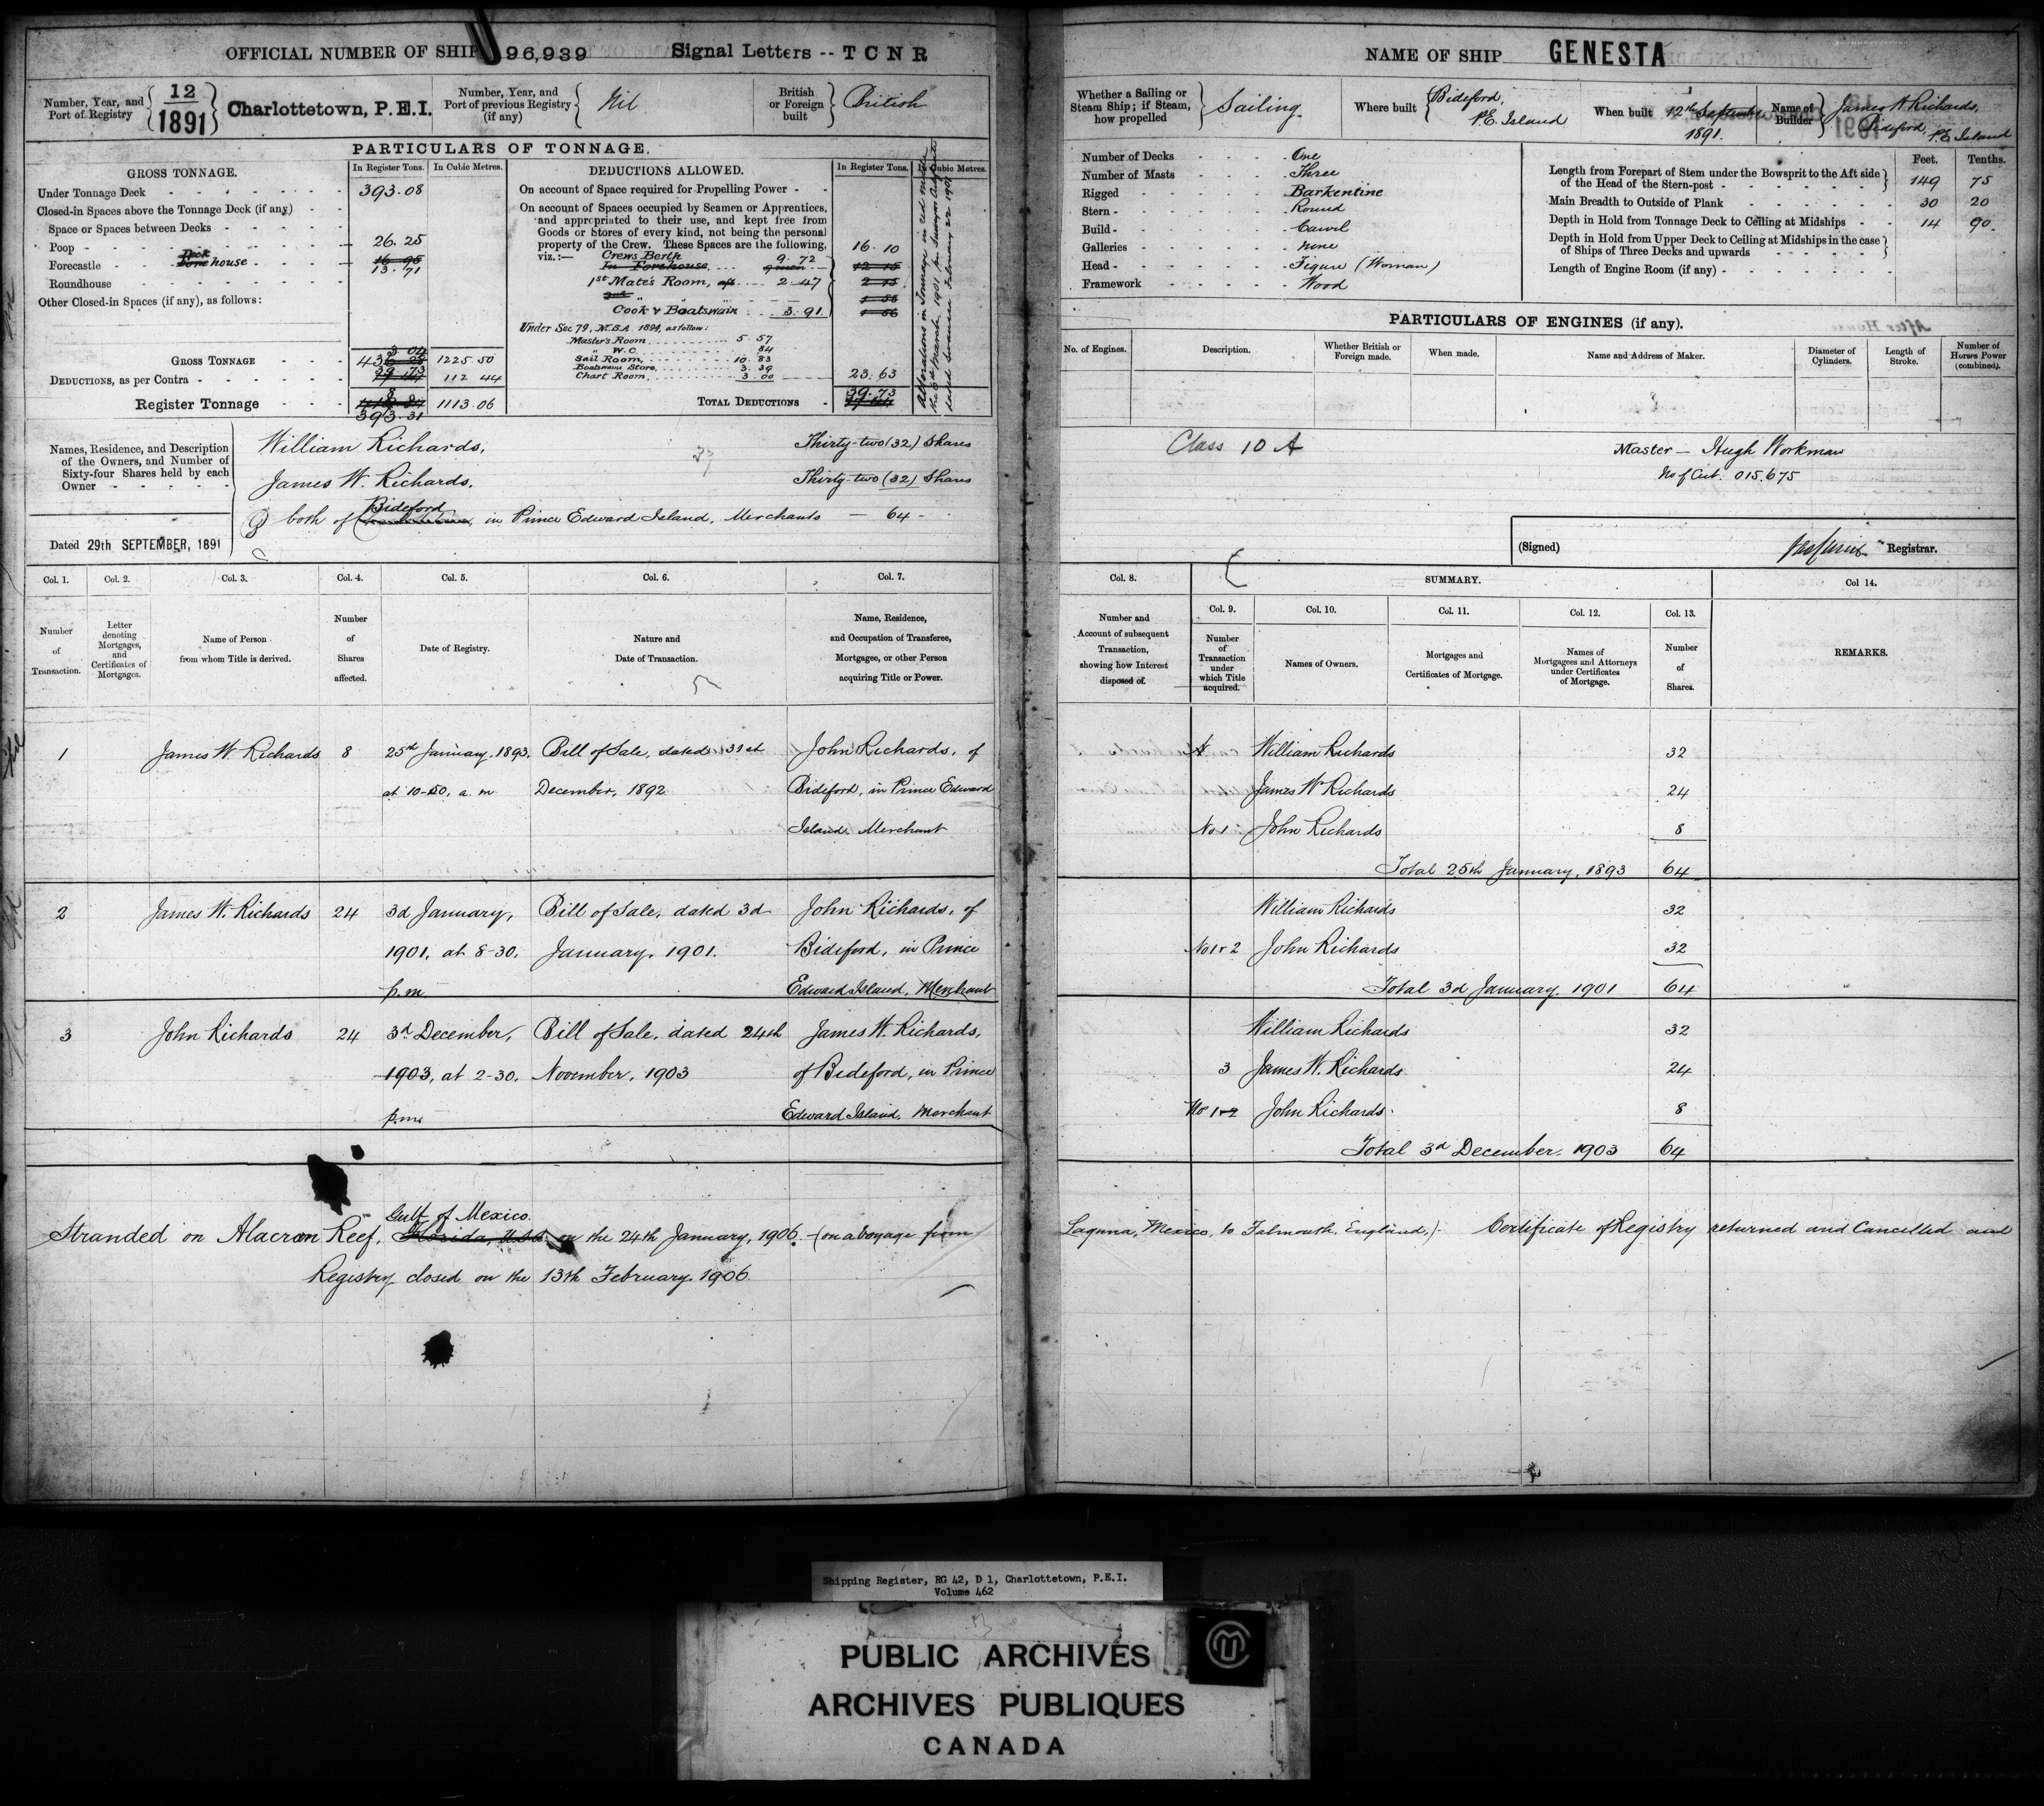 OFFICIAL NUMBER OF SHIP 96,939 Signal Letters -- T C N R
Number, Year, and Port of Registry 12/1891 Charlottetown, P.E.I.
Number, Year, and Port of previous Registry (if any) Nil
British or Foreign built British
PARTICULARS OF TONNAGE.
GROSS TONNAGE. In Register Tons. In Cubic Metres.
Under Tonnage Deck 393.08
Closed-in Spaces above the Tonnage Deck (if any)
Space or Spaces between Decks
Poop 26.25
Forecastle Deck house 16 95
13.71
Roundhouse
Other Closed-in Spaces (if any), as follows:
GROSS TONNAGE 433 04 1225.50
DEDUCTIONS, as per Contra 39.73 112 44
Register Tonnage 1113.06
393.31
DEDUCTIONS ALLOWED. In Register Tons. In Cubic Metres.
On account of Space required for Propelling Power
On account of Spaces occupied by Seamen or Apprentices,
and appropriated to their use, and kept free from
Goods or Stores of every kind, not being the personal
property of the Crew. These Spaces are the following,
viz.:— Crews Berth 9.72 16.10
In Forehouse
1st Mate's Room, 2.47
Cook & Boatswain 3.91
Under Sec 79, M.S.A. 1894, as follow:
Master's Room 5 57
" W.C. 84
Sail Room, 10.83
Boatswains Store, 3.39
Chart Room, 3.00 23.63
TOTAL DEDUCTIONS 39.73
Names, Residence, and Description
of the Owners, and Number of
Sixty-four Shares held by each
Owner
William Richards, Thirty-two (32) Shares
James W. Richards, Thirty-two (32) Shares
Bideford
both of in Prince Edward Island, Merchants — 64 -
Dated 29th SEPTEMBER, 1891
Col. 1. Col. 2. Col. 3. Col. 4. Col. 5. Col. 6. Col. 7.
Number of Transaction.
Letter denoting Mortgages, and Certificates of Mortgages.
Name of Person from whom Title is derived.
Number of Shares affected.
Date of Registry.
Nature and Date of Transaction.
Name, Residence, and Occupation of Transferee, Mortgagee, or other Person acquiring Title or Power.
1 James W. Richards 8 25th January, 1893. Bill of Sale, dated 31st John Richards, of
at 10-50, a.m December, 1892 Bideford, in Prince Edward
Island. Merchant
2 James W. Richards 24 3d January, Bill of Sale, dated 3d John Richards, of
1901, at 8-30. January, 1901. Bideford, in Prince
p.m. Edward Island, Merchant
3 John Richards 24 3d December, Bill of Sale, dated 24th James W. Richards,
1903, at 2-30. November, 1903 of Bideford, in Prince
p.m. Edward Island, Merchant
Gulf of Mexico.
Stranded on Alacran Reef, Florida, U.S.A. on the 24th January, 1906. (on a voyage from
Registry closed on the 13th February, 1906.
NAME OF SHIP GENESTA
Whether a Sailing or Steam Ship; if Steam, how propelled Sailing.
Where built Bideford, P.E. Island
When built 12th September 1891.
Name of Builder James W. Richards, Bideford, P.E. Island
Number of Decks One
Number of Masts Three
Rigged Barkentine
Stern Round
Build Carvel
Galleries None
Head Figure (Woman)
Framework Wood
Feet. Tenths.
Length from Forepart of Stem under the Bowsprit to the Aft side
of the Head of the Stern-post 149 75
Main Breadth to Outside of Plank 30 20
Depth in Hold from Tonnage Deck to Ceiling at Midships 14 90
Depth in Hold from Upper Deck to Ceiling at Midships in the case
of Ships of Three Decks and upwards
Length of Engine Room (if any)
PARTICULARS OF ENGINES (if any).
No. of Engines. Description. Whether British or Foreign made. When made. Name and Address of Maker. Diameter of Cylinders. Length of Stroke. Number of Horses Power (combined).
Class 10 A Master — Hugh Workman
No of Cert. 015.675
(Signed) Registrar.
Col. 8. SUMMARY. Col 14.
Col. 9. Col. 10. Col. 11. Col. 12. Col. 13.
Number and Account of subsequent Transaction, showing how Interest disposed of.
Number of Transaction under which Title acquired.
Names of Owners.
Mortgages and Certificates of Mortgage.
Names of Mortgagees and Attorneys under Certificates of Mortgage.
Number of Shares.
REMARKS.
William Richards 32
James W Richards 24
No 1 John Richards 8
Total 25th January, 1893 64
William Richards 32
No 1 & 2 John Richards 32
Total 3d January, 1901 64
William Richards 32
3 James W. Richards 24
No 1 & 2 John Richards 8
Total 3d December, 1903 64
Laguna, Mexico, to Falmouth, England.) Certificate of Registry returned and Cancelled and
Shipping Register, RG 42, D 1, Charlottetown, P.E.I.
Volume 462
PUBLIC ARCHIVES
ARCHIVES PUBLIQUES
CANADA